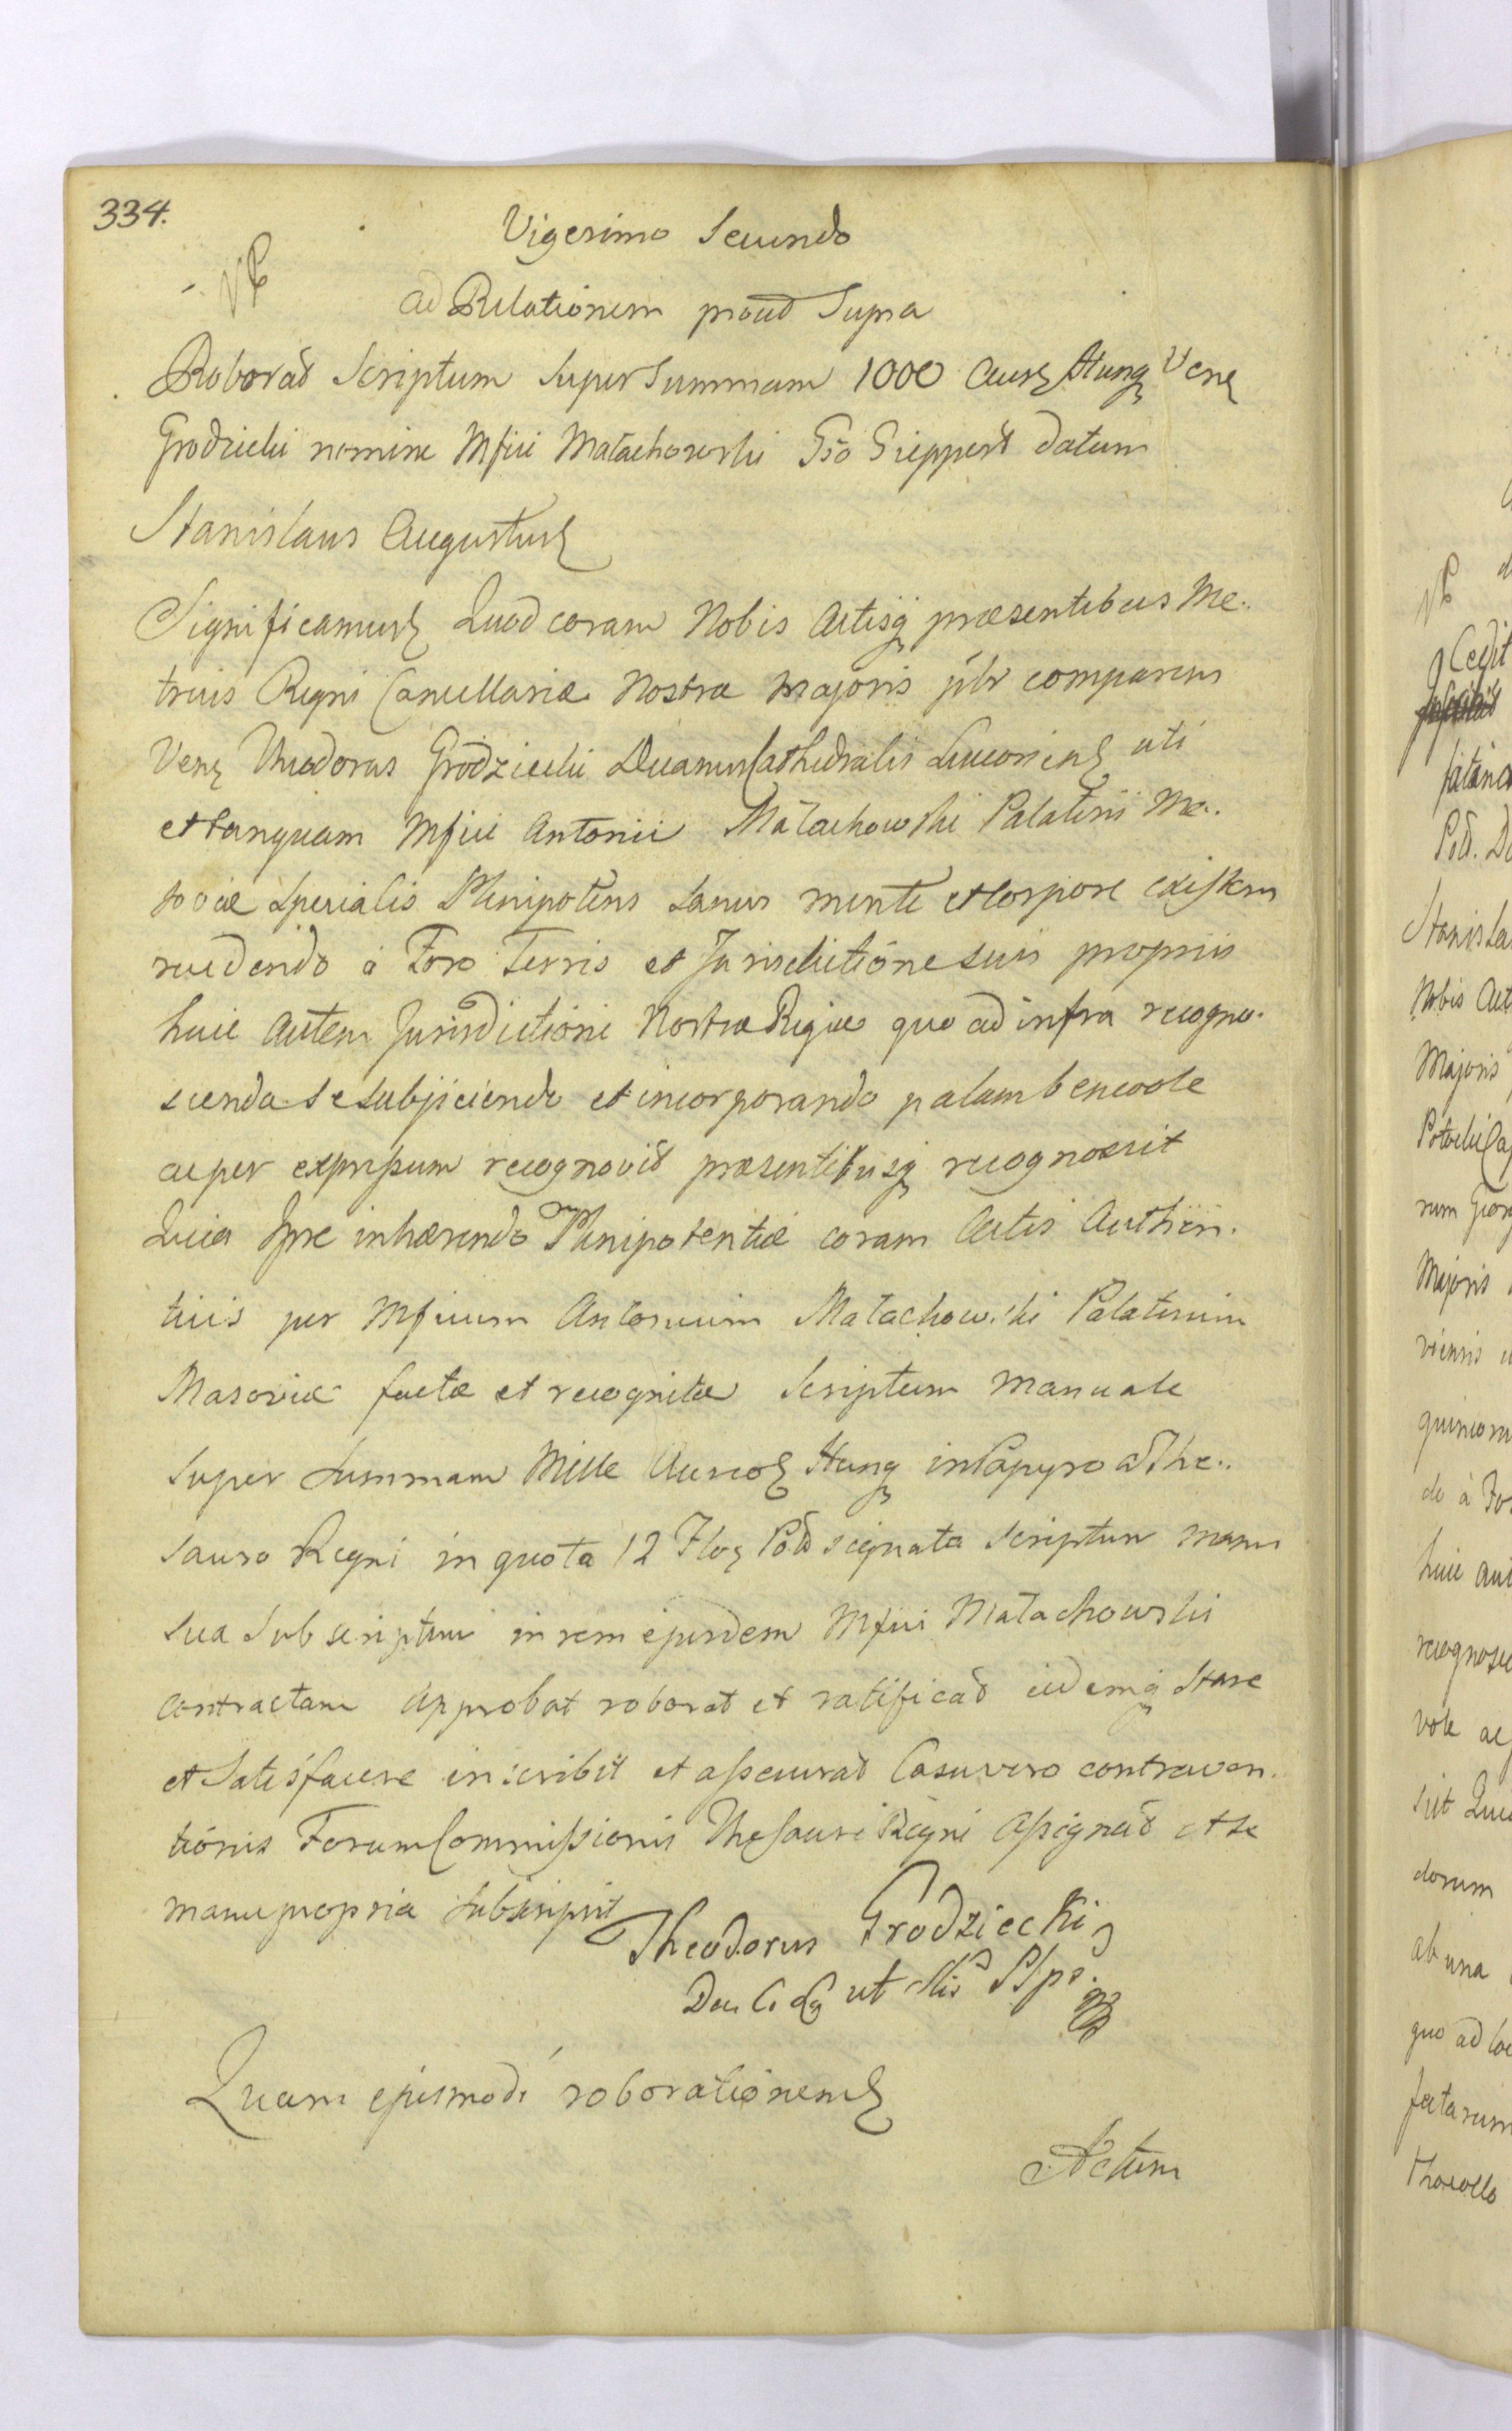 334.
Vigesimo Secundo
ad Relationem proud Supra
Roborad Scriptum Super Summam 1000 Aur Hung Ven
Grodzicki nomine Mfici Małachowski Gso Gieppert datum
Stanislaus Augustus
Significamus Quod coram Nobis Actisq praesentibus Me.
tricis Regni Cancellariae Nostrae Majoris pltr comparens
Ven Theodorus Grodziecki Decanus Cathedralis Luceorien uti
et tanquam Mfici Antonii Małachowski Palatini Ma.
soviae Specialis Plenipotens Sanus mente et Corpore existens
recedendo à Foro Terris et Jurisdictione suis propriis
huic autem Jurisdictioni Nostrae Regiae quo ad infra recogno.
scenda se subjiciendo et incorporando palam benevole
ac per expressum recognovit praesentibusq recognoscit
Quia Ipse inhaerendo Plenipotentiae coram Actis Authen.
ticis per Mficum Antonium Małachowski Palatinum
Masoviae factae et recognitae Scriptum Manuale
Super Summam Mille Aureo Hung in Papyro a The..
sauro Regni in quota 12 Flo Pol signata Scriptum manu
sua Subscriptum in rem ejusdem Mfici Małachowski
contractam Approbat roborat et ratificad eidemq Stare
et Satisfacere inscribit et assecurad Casu vero contraven.
tionis Forum Commissionis Thesauri Regni Assignad et se
manu propria Subscripsit
Theodorus Grodziecki
Dec C. Łuc ut Plis
Quam ejusmodi roborationem
Actum
Cedit
Stanisla
Nobis Act
Majoris
Potocki Ca
rum
Majoris
viensis
do à Fo
huic aut
recognosc
vole ac
scit Quia
dorum
ab una
quo ad